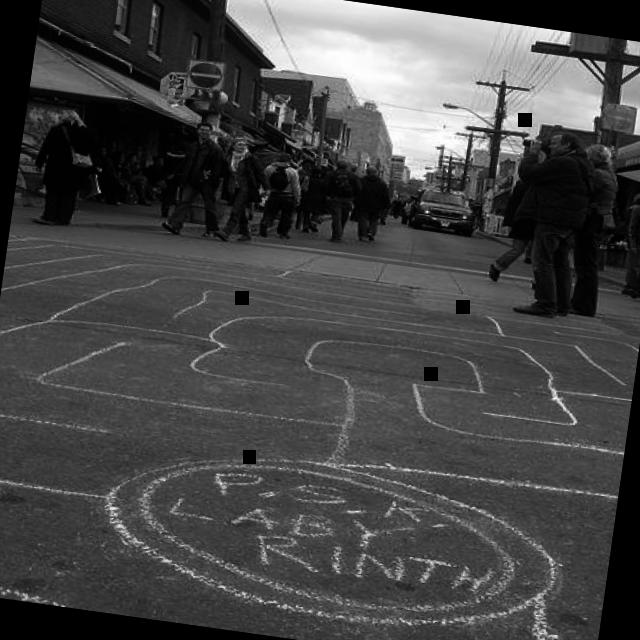 P.S.K.
LABY-
RINTH